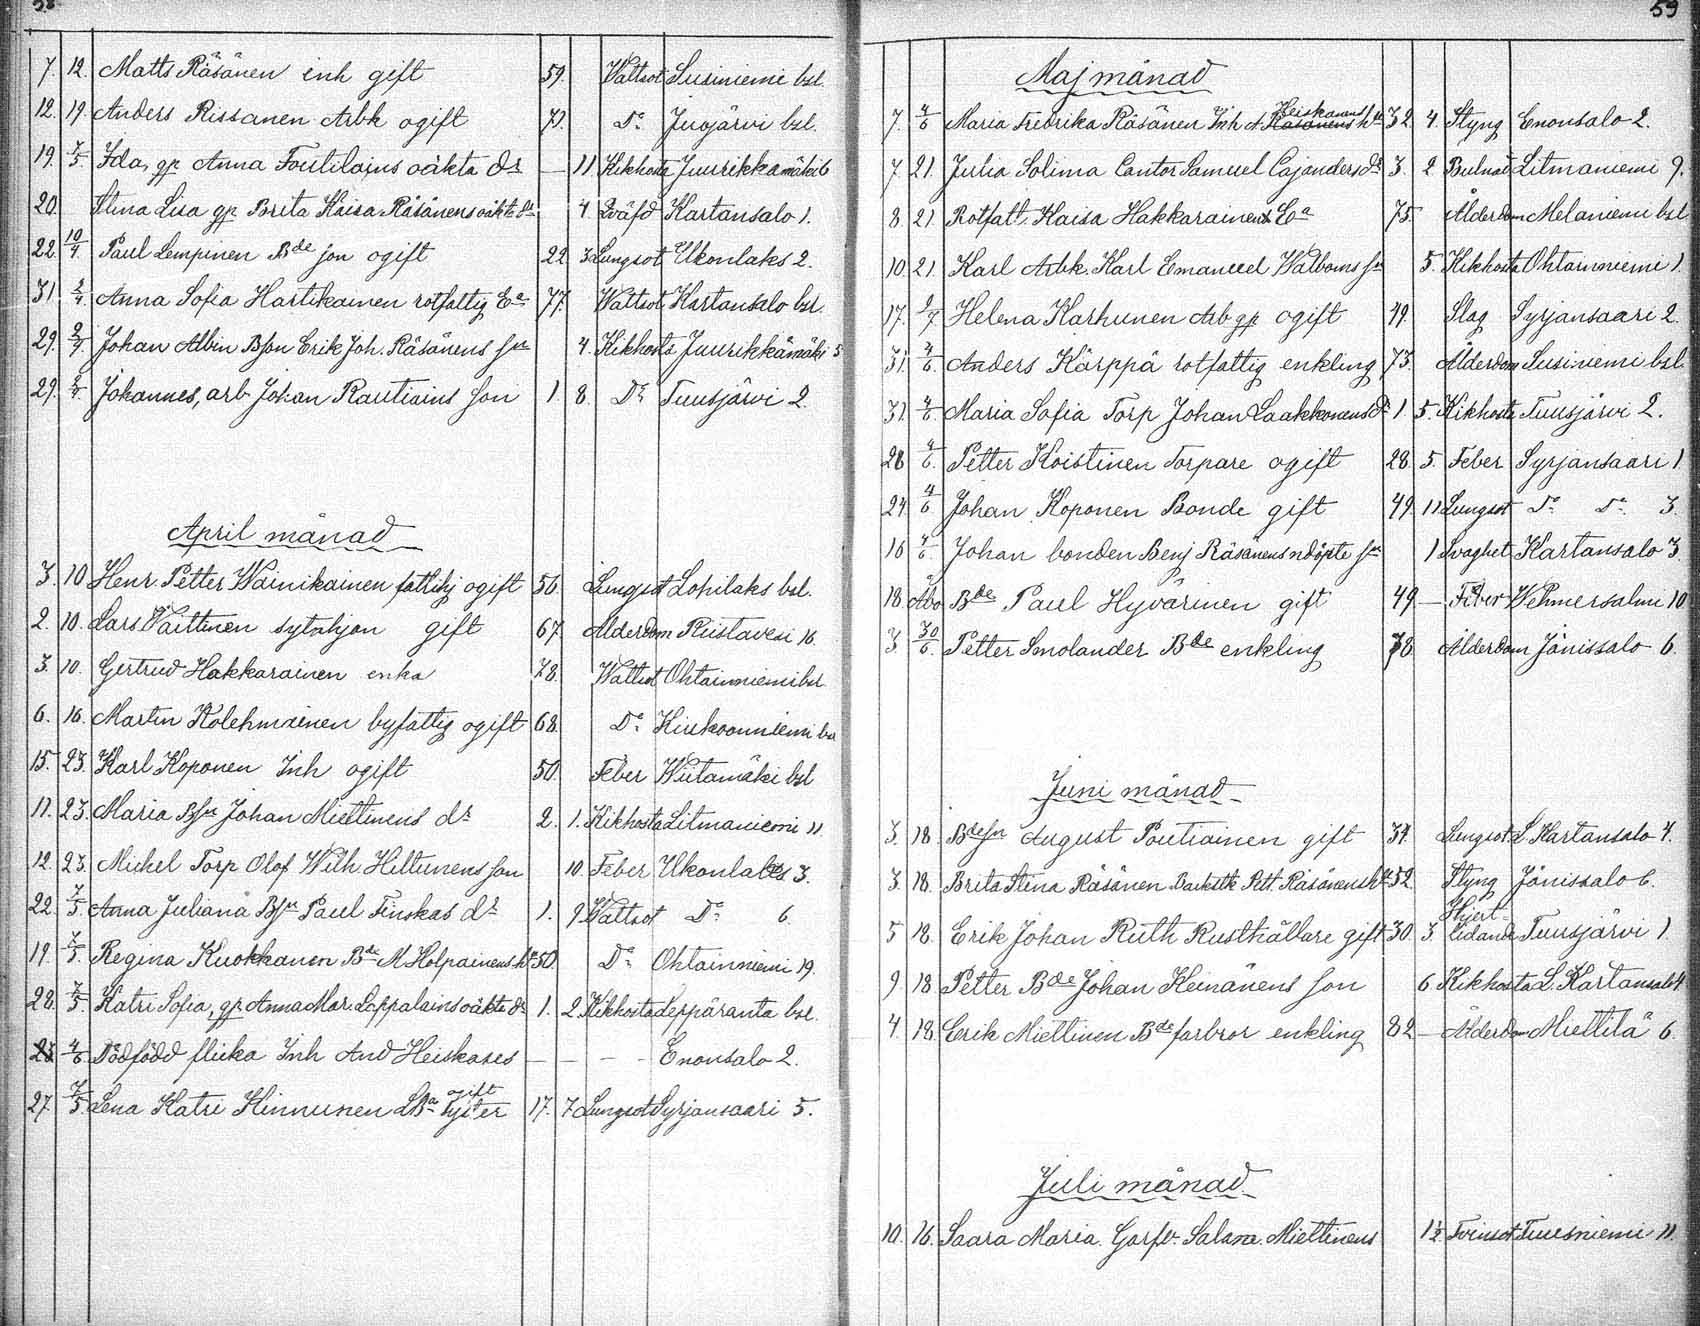 58
7. 12. Matts Räsänen inh gift 59. Wattsot Susiniemi bsl.
12. 19. Anders Rissanen Arbk ogift 71. Do Juojärvi bsl.
19. 7/5. Ida, gp. Anna Toutilains oäkta dr — 11 Kikhosta Juurikkamäki 6
20. Stina Lisa gp Brita Kaisa Räsänens oäkta dr 4. Kartansalo 1.
22. 10/4. Paul Lempinen Bde son ogift 22. 3. Lungsot Ukonlaks 2.
31 2/4. Anna Sofia Hartikainen rotfattig Ea 77. Wattsot Kartansalo bsl.
29. 2/4. Johan Albin Bson Erik Joh. Räsänens sn 4. Kikhosta Juurikkamäki 5
29. 2/4. Johannes, arb Johan Rautiains son 1. 8. Do Tuusjärvi 2.
April månad
3. 10 Henr. Petter Wainikainen fattihj ogift 56. Lungsot Lohilaks bsl.
2. 10. Lars Väittinen sytnhjon gift 67. Ålderdom Riistavesi 16.
3. 10. Gertrud Hakkarainen enka 78. Wattsot Ohtainniemi bsl
6. 16. Martin Kolehmainen byfattig ogift 68. Do Hiukoonniemi bsl
15. 23. Karl Koponen Inh ogift 50. Feber Wiitamäki bsl
11. 23. Maria Bsn Johan Miettinens dr 2. 1. Kikhosta Litmaniemi 11.
12. 23. Michel Torp Olof Wilh. Hiltunens son 10. Feber Ukonlaks 3.
22. 7/5. Anna Juliana Bsn Paul Finskas dr 1. 9. Wattsot Do 6.
19. 7/5. Regina Kuokkanen Bde M Holpainens h 50. Do Ohtainniemi 19.
28. 7/5. Katri Sofia, gp. Anna Mar. Leppalains oäkta dr 1. 2. Kikhosta Leppäranta bsl.
23. 4/6. Dödfödd flicka Inh And Heiskases — — — — Enonsalo 2.
ogift
27. 7/5. Lena Katri Hinnunen syster 17. 7. Lungsot Syrjansaari 5.
59
Maj månad
Heiskanens
7. 4/6 Maria Fredrika Räsänen Inh A. Räsänens h 32. 4. Styng Enonsalo 2.
7 21. Julia Solima Cantor Samuel Cajanders dr 3. 2 Bulnad Litmaniemi 9.
8 21. Rotfatt. Kaisa Hakkarainen Ea 75. Ålderdom Melaniemi bsl
10. 21. Karl Arbk. Karl Emanuel Walboms sn 5. Kikhosta Ohtainniemi 1.
17. 2/7 Helena Karhunen Arb gp ogift 49. Slag Syrjansaari 2.
31. 4/6. Anders Kärppä rotfattig enkling 73. Ålderdom Susiniemi bsl.
31. 4/6. Maria Sofia Torp Johan Laakkonens dr 1. 5. Kikhosta Tuusjärvi 2.
28 4/6. Petter Koistinen Torpare ogift 28. 5. Feber Syrjansaari 1.
24. 4/6 Johan Koponen Bonde gift 49. 11 Lungsot Do Do 3.
16 4/6. Johan bonden Benj Räsänens ndöpte sn 1 Svaghet Kartansalo 3.
18. Åbo Bde Paul Hyvärinen gift 49. — Feber Wehmersalmi 10
3 30/6. Petter Smolander Bde enkling 78. Ålderdom Jänissalo 6.
Juni månad
3. 18. Bdesn August Poutiainen gift 34. Lungsot L. Kartansalo 4.
3. 18. Brita Stina Räsänen Pett. Räsänens h 52. Styng Jänissalo 6.
Hjert-
5 18. Erik Johan Ruth Rusthållare gift 30. 3 lidande Tuusjärvi 1.
9. 18. Petter Bde Johan Heinänens son 6. Kikhosta L. Kartansalo 4.
4. 18. Erik Miettinen Bde farbror enkling 82 — Ålderdom Miettilä 6.
Juli månad
10. 16. Saara Maria. Miettinens 1½ Tvinsot Tuusniemi 11.